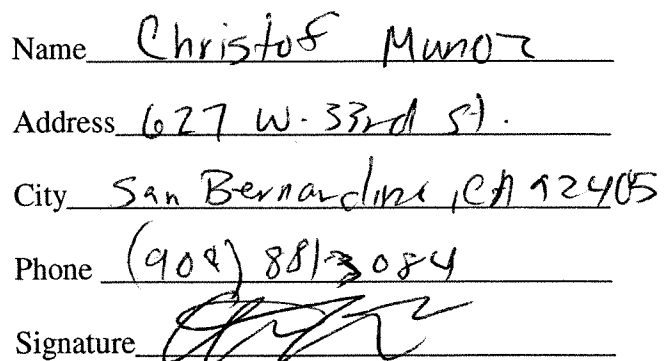 Name Christof Munoz
Address 627 W. 33rd St.
City San Bernardino, CA 92405
Phone (909) 881-3084
Signature